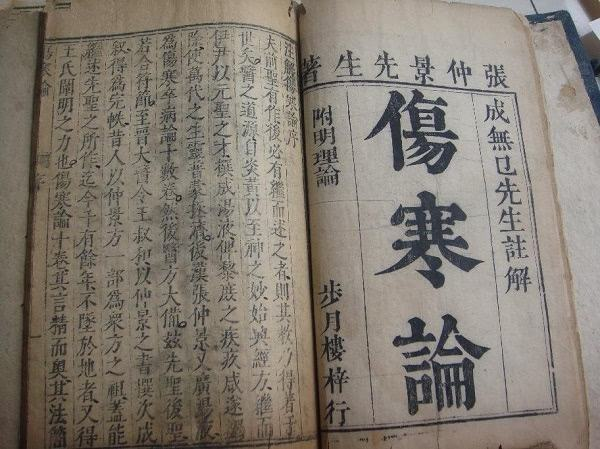 張仲景先生著
成無已先生註解
傷寒論
附明理論
步月樓梓行
注解傷寒論序
夫前聖有作後必有繼而述之者則其教乃得著于
世矣醫之道源自炎黃以至神之妙始興經方繼而
伊尹以元聖之才撰成湯液俾黎庶之疾疢咸遂蠲
除使萬代之生靈普蒙拯濟後漢張仲景又廣湯液
為傷寒卒病論十數卷然後醫方大備茲先聖後聖
若合符節至晉太醫令王叔和以仲景之書撰次成
叙得為完帙昔人以仲景方一部為衆方之祖蓋能
繼述先聖之所作迄今千有餘年不墜於地者又得
王氏闡明之力也傷寒論十卷其言精而奧其法簡